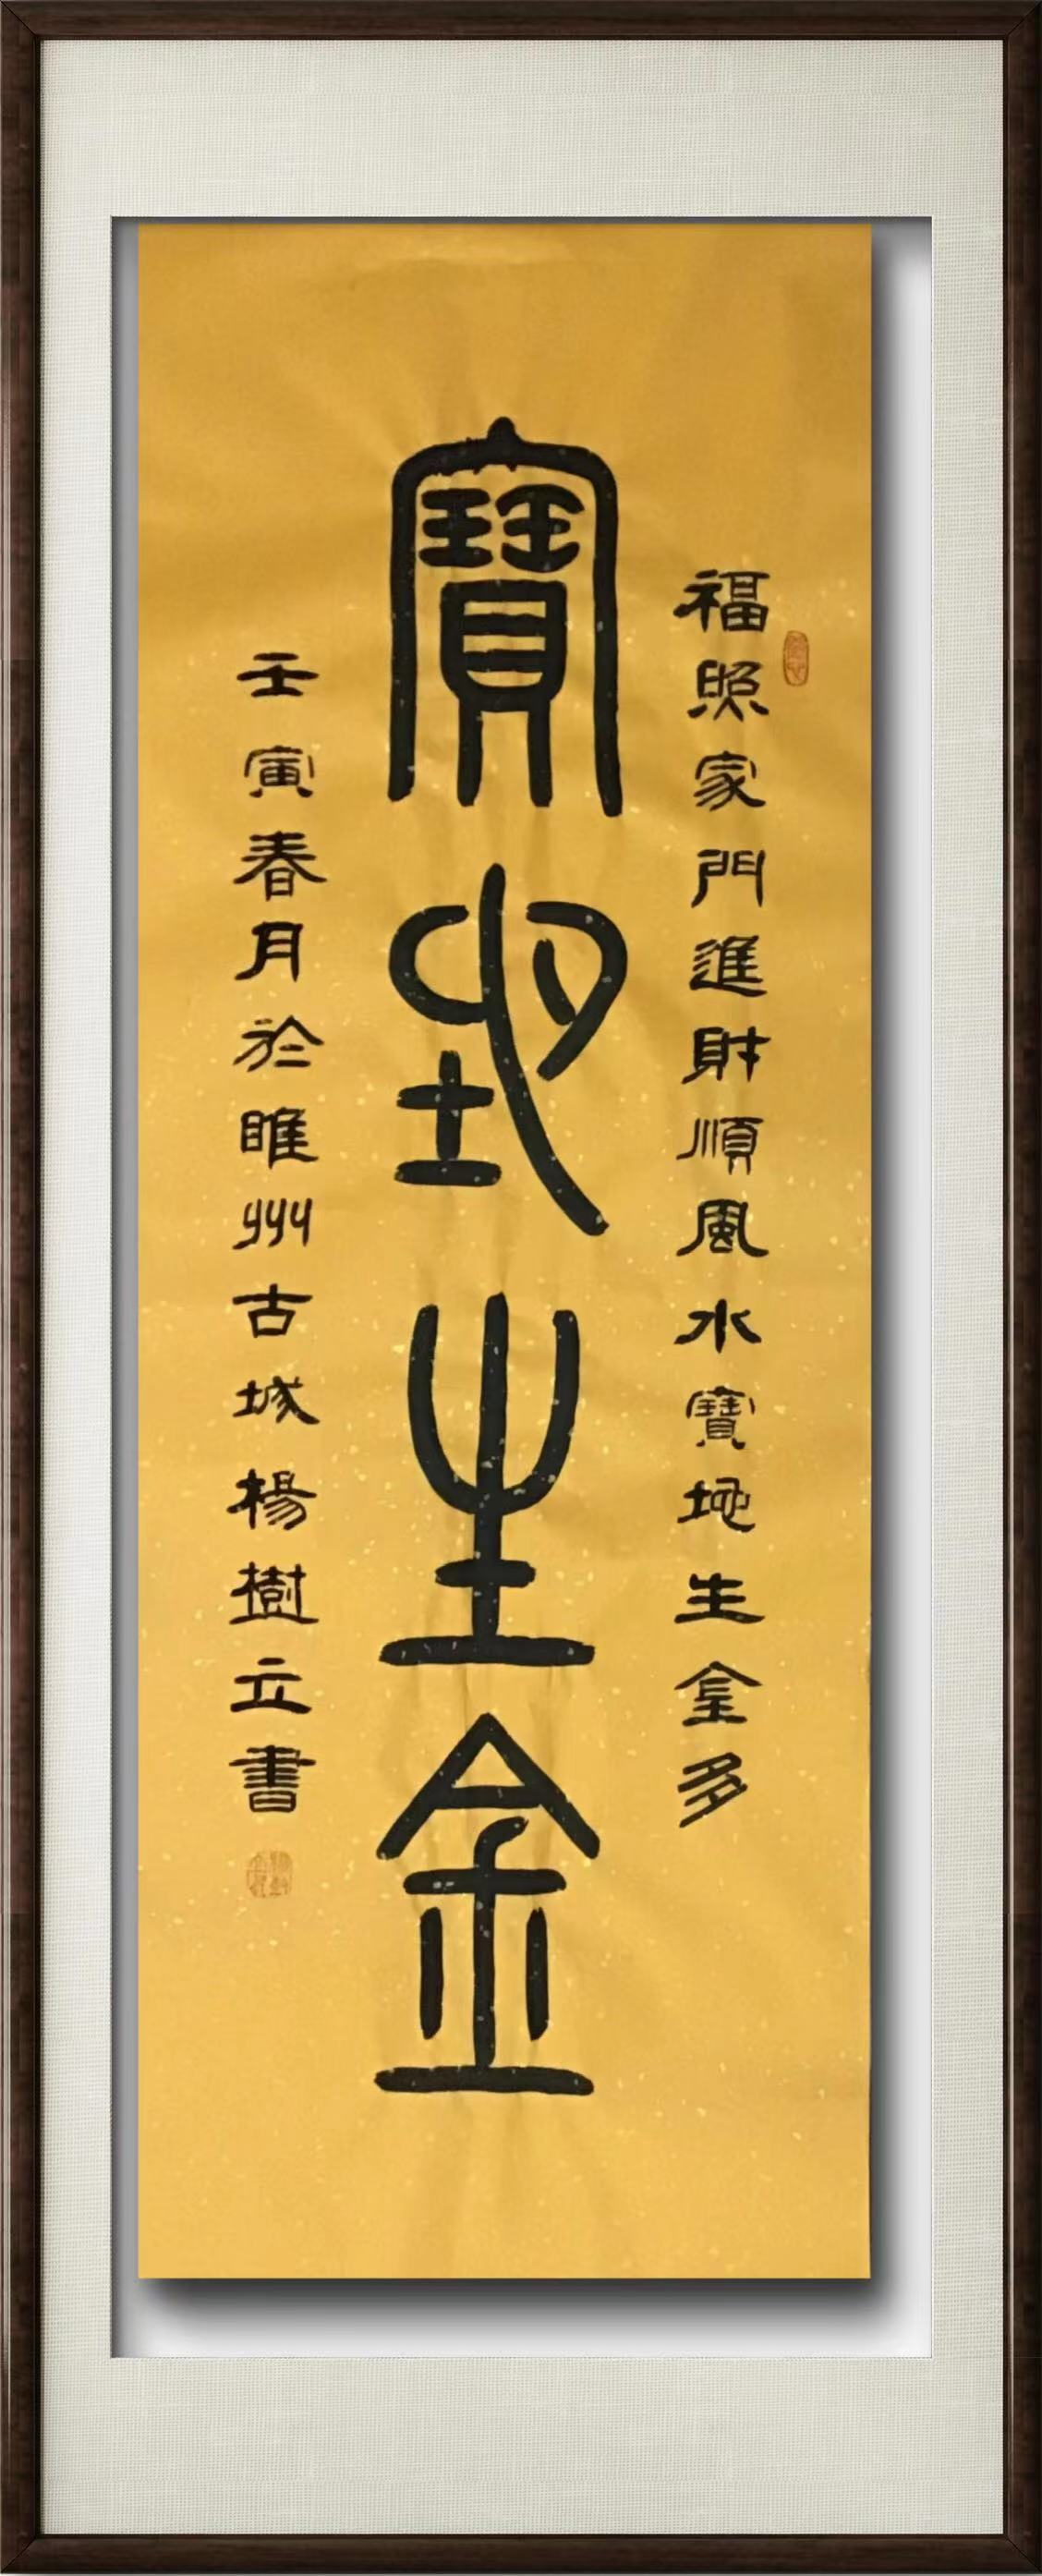 福照家門進財順風水寶地生金多
寶地生金
壬寅春月於睢州古城楊樹立書